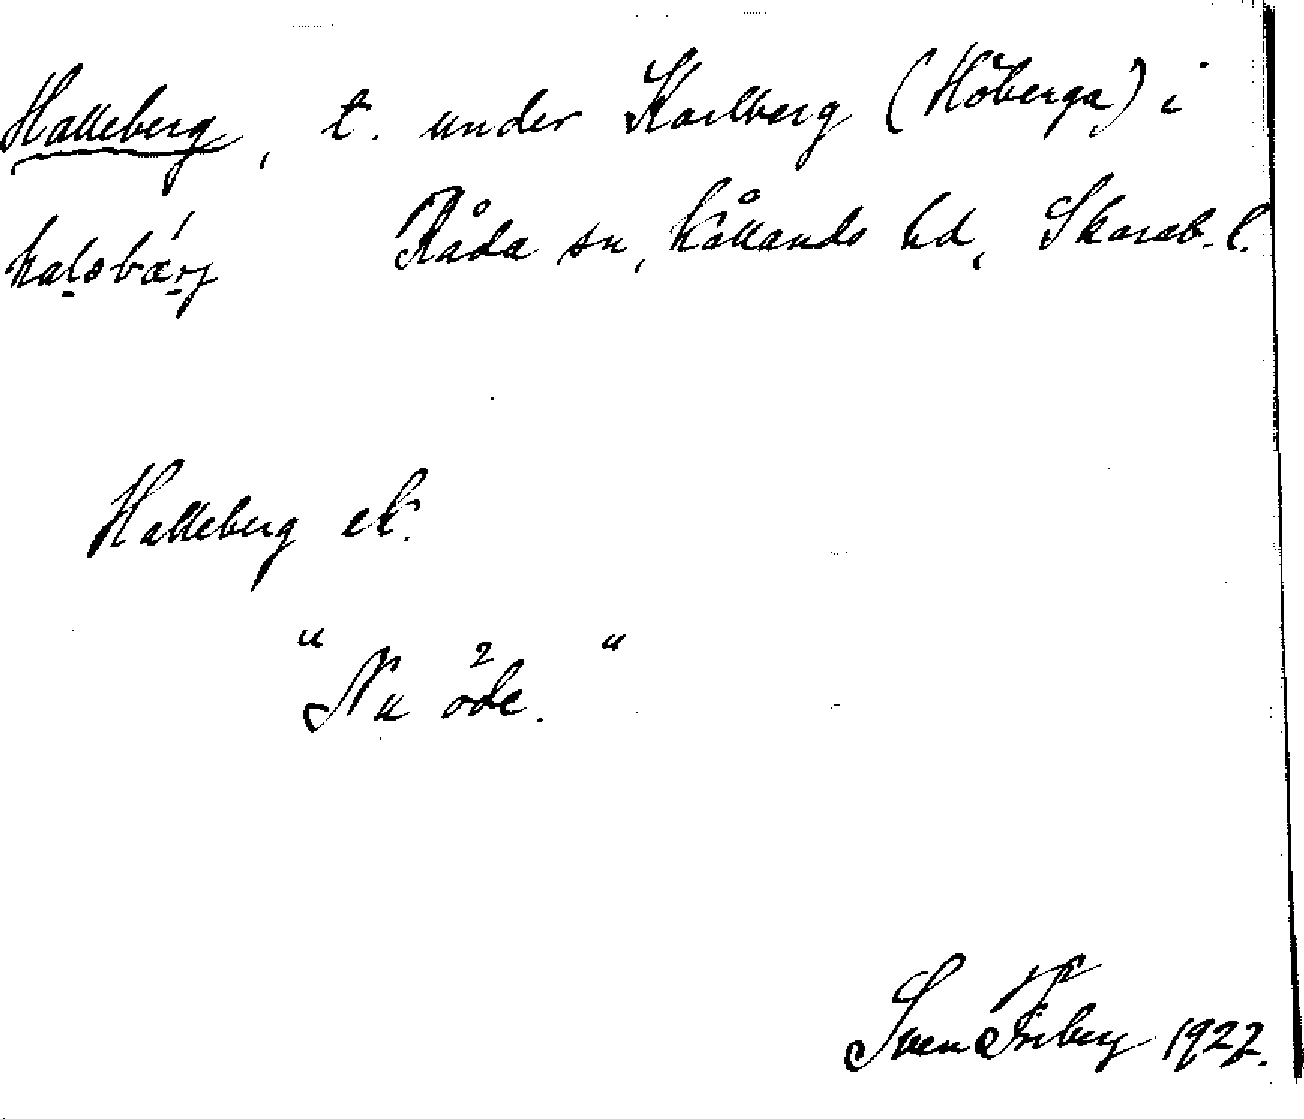 Halleberg, t. under Karlberg (Höberga) i
halsbärj Råda sn, Kållands hd, Skarab. l.
Halleberg ek.
"Nu öde."
Sven Friberg 1922.